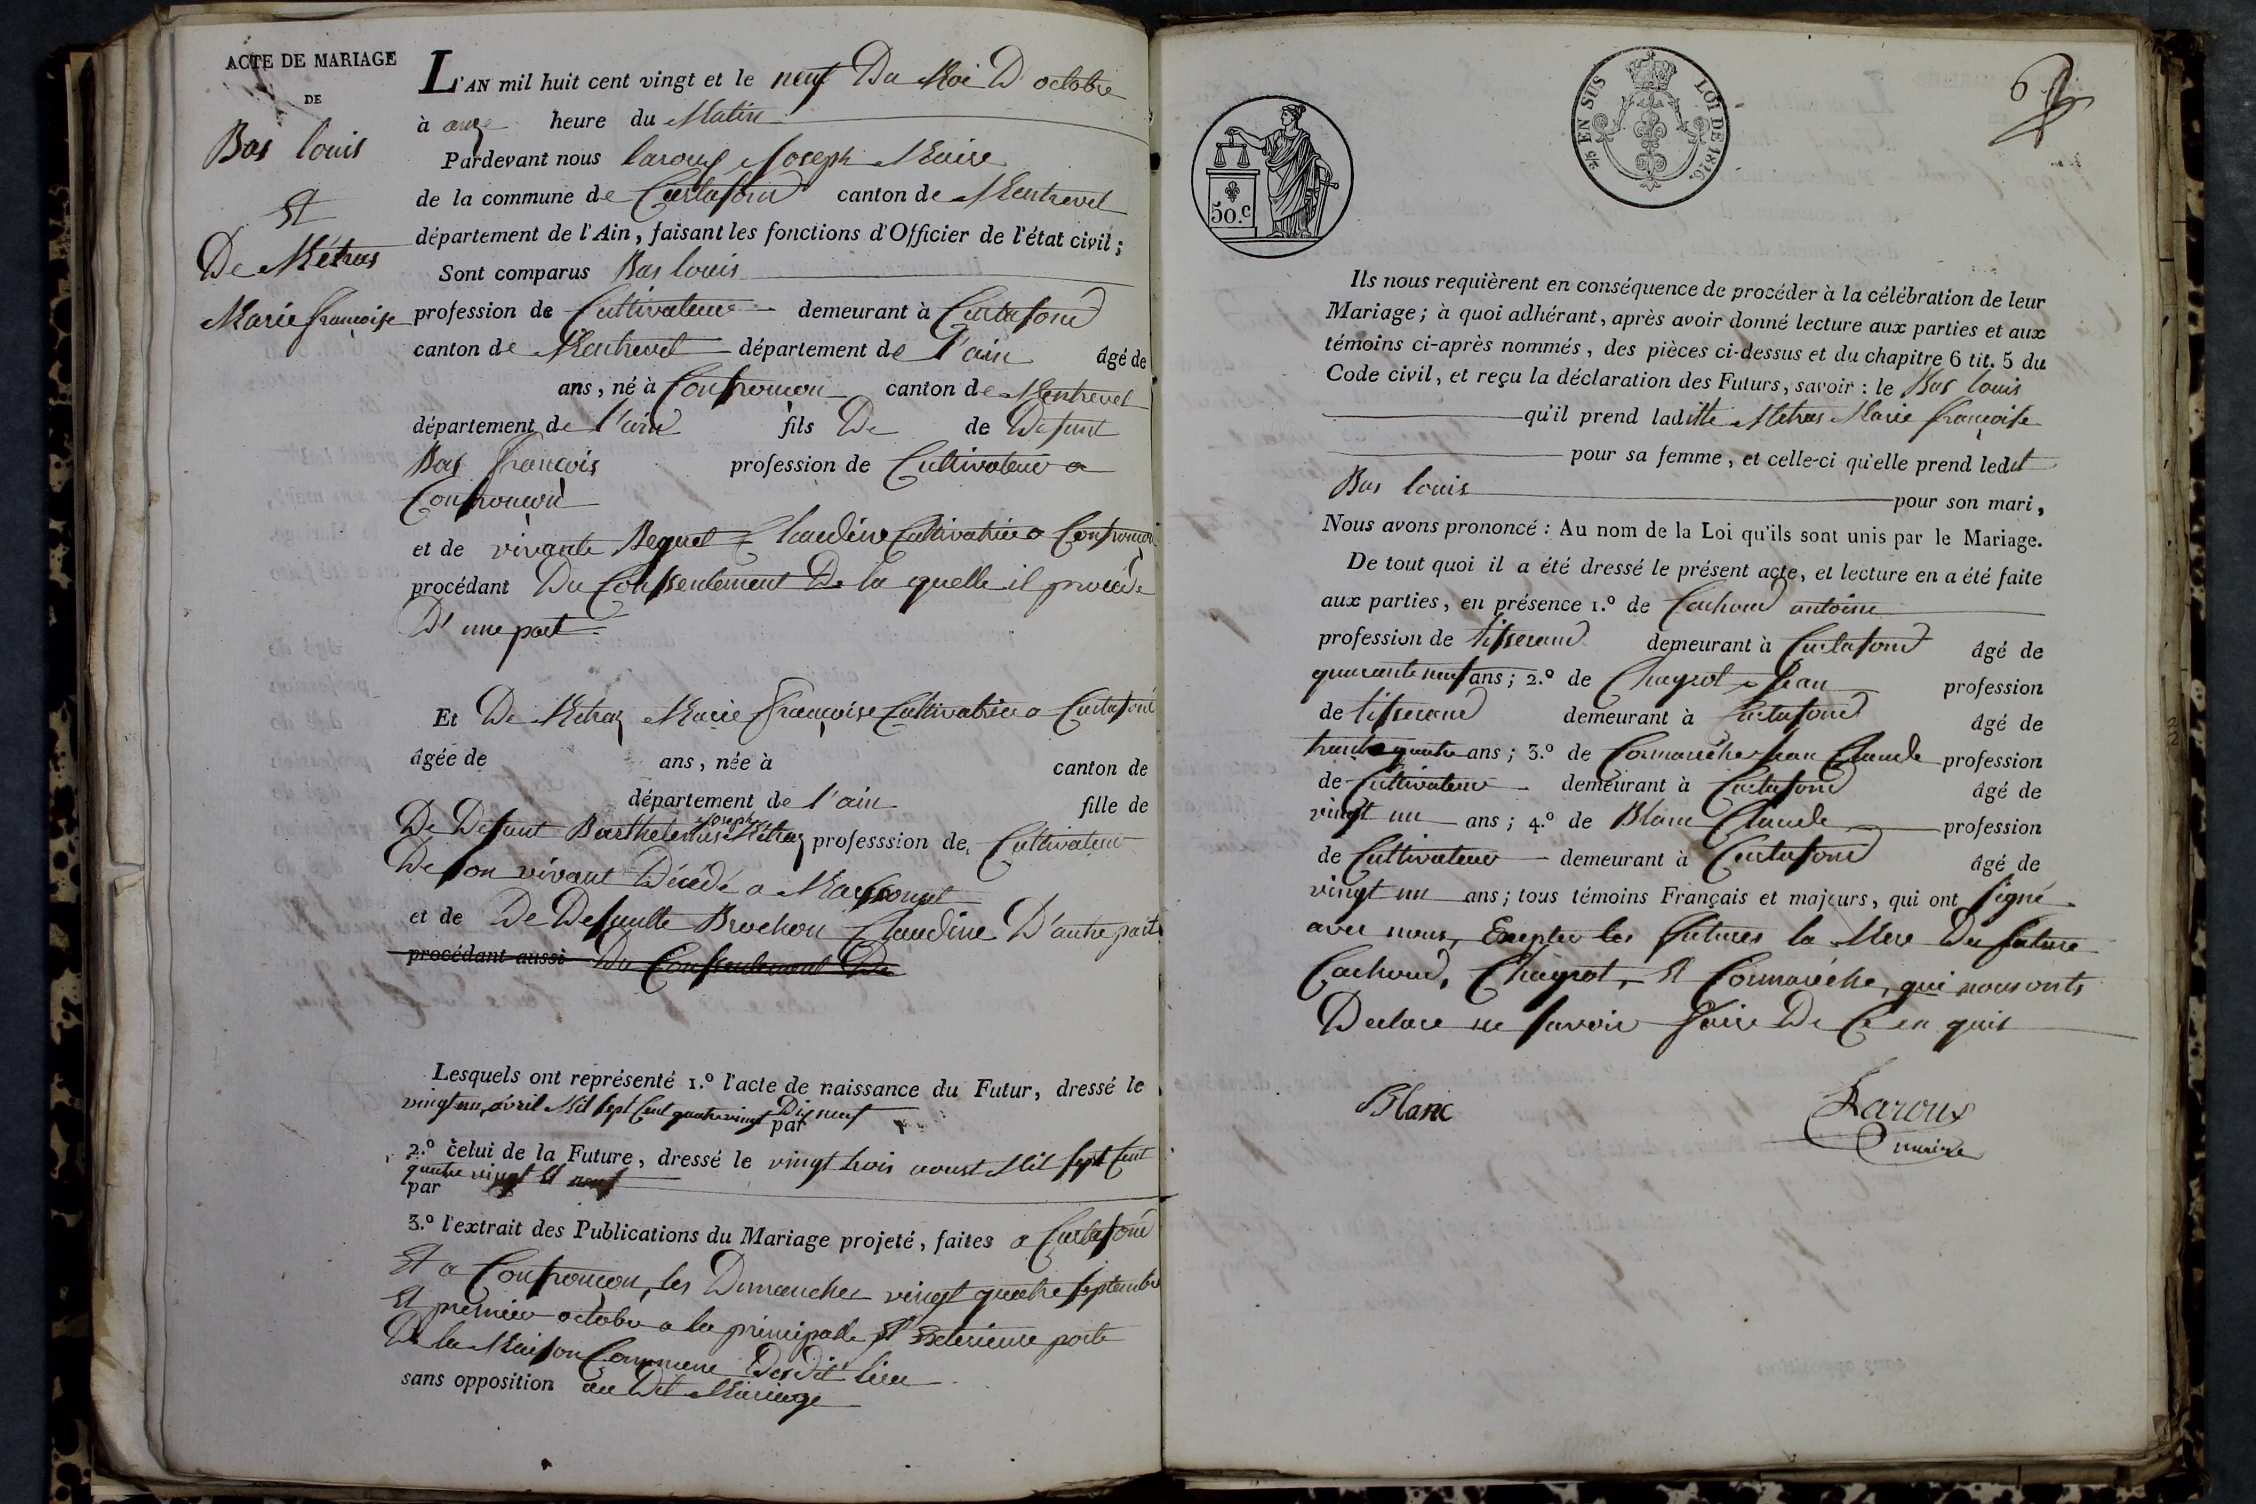 ACTE DE MARIAGE
DE
Bas louis
Et
De Métras
Marie françoise
L'AN mil huit cent vingt et le neuf Du Moi D'octobre
à onze heure du Matin
Pardevant nous laroux Joseph Maire
de la commune de Curtafond canton de Montrevel
département de l'Ain, faisant les fonctions d'Officier de l'état civil;
Sont comparus Bas louis
profession de Cultivateur demeurant à Curtafond
canton de Montrevel département de l'ain âgé de
ans, né à Confrançon canton de Montrevel
département de l'ain fils De de Defunt
Bas françois profession de Cultivateur a
Confrançon
et de vivante Claudine Cultivatrice a Confrançon
procédant Du Consentement De la quelle il procede
D'une part
Et De Metraz Marie françoise Cultivatrice a Curtafond
âgée de ans, née à canton de
département de l'ain fille de
De Defunt Barthelemis Joseph Métraz professsion de Cultivateur
De son vivant Décédé a
et de De Defunte Brochon Claudine D'autre part
procédant aussi Du Consentement De
Lesquels ont représenté 1.º l'acte de naissance du Futur, dressé le
vingt un avril Mil sept Cent quatre vingt Dix neuf
par
2.º celui de la Future, dressé le vingt trois aoust Mil sept Cent
quatre vingt et neuf
par
3.º l'extrait des Publications du Mariage projeté, faites a Curtafond
Et a Confrançon, les Dimanches vingt quatre septembre
Et premier octobre a la principalle Et Exterieure porte
De la Maison Commune Desdit lieu
sans opposition au Dit Mariage
50.c
EN SUS
LOI DE 1816.
6
Ils nous requièrent en conséquence de procéder à la célébration de leur
Mariage; à quoi adhérant, après avoir donné lecture aux parties et aux
témoins ci-après nommés, des pièces ci-dessus et du chapitre 6 tit. 5 du
Code civil, et reçu la déclaration des Futurs, savoir : le Bas louis
qu'il prend laditte Metras Marie françoise
pour sa femme, et celle-ci qu'elle prend ledit
Bas louis pour son mari,
Nous avons prononcé : Au nom de la Loi qu'ils sont unis par le Mariage.
De tout quoi il a été dressé le présent acte, et lecture en a été faite
aux parties, en présence 1.º de Cachoud antoine
profession de tisserand demeurant à Curtafond âgé de
quarante neuf ans; 2.º de Chagrot Jean profession
de tisserand demeurant à Curtafond âgé de
trente quatre ans; 3.º de Cormareche Jean Claude profession
de Cultivateur demeurant à Curtafond âgé de
vingt un ans; 4.º de Blanc Claude profession
de Cultivateur demeurant à Curtafond âgé de
vingt un ans; tous témoins Français et majeurs, qui ont signé
avec nous, Excepter les futures la Mere Du future
Cachoud, Chagrot, Et Cormarèche, qui nous onts
Declare ne savoir faire De Ce en quis
Blanc
Laroux
maire